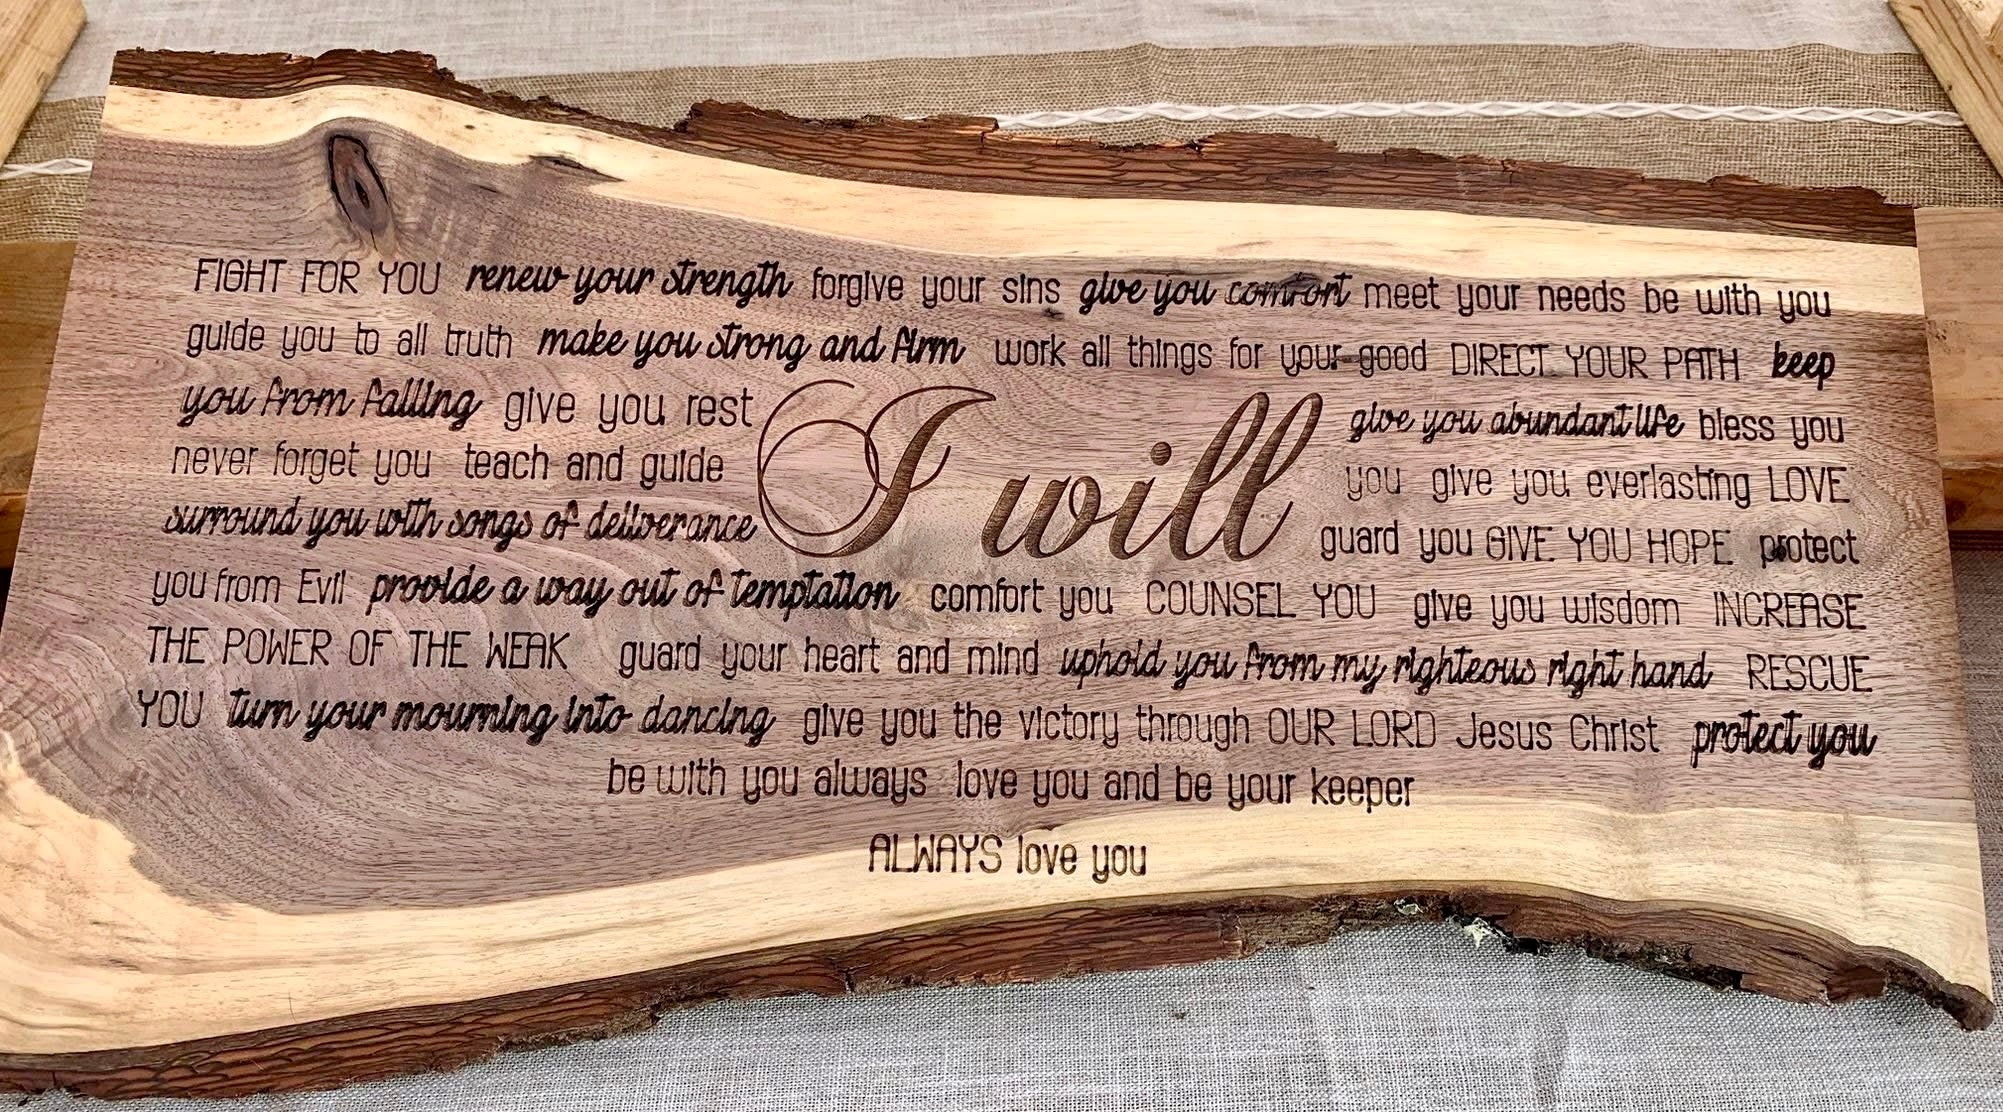 FIGHT FOR YOU renew your strength forgive your sins give you comfort meet your needs be with you
guide you to all truth make you strong and firm work all things for your good DIRECT YOUR PATH keep
you from falling give you rest give you abundant life bless you
never forget you teach and guide I will you give you everlasting LOVE
surround you with songs of deliverance guard you GIVE YOU HOPE protect
you from Evil provide a way out of temptation comfort you COUNSEL YOU give you wisdom INCREASE
THE POWER OF THE WEAK guard your heart and mind uphold you from my righteous right hand RESCUE
YOU turn your mourning into dancing give you the victory through OUR LORD Jesus Christ protect you
be with you always love you and be your keeper
ALWAYS love you